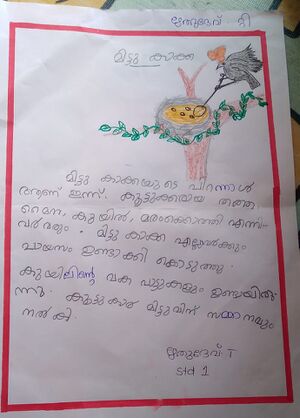 ഋതുദേവ്. ടി
മിട്ടു കാക്ക
മിട്ടു കാക്കയുടെ പിറന്നാൾ
ആണ് ഇന്ന്. കൂട്ടുക്കരായ തത്ത,
മൈന, കുയിൽ, മരംകൊത്തി എന്നി-
വർ വന്നു. മിട്ടു കാക്ക എല്ലാവർക്കും
പായസം ഉണ്ടാക്കി കൊടുത്തു.
കുയിലിന്റെ വക പാട്ടുകളും ഉണ്ടായിരു-
ന്നു. കൂട്ടുകാർ മിട്ടുവിന് സമ്മാനവും
നൽകി.
ഋതുദേവ്. T
std 1